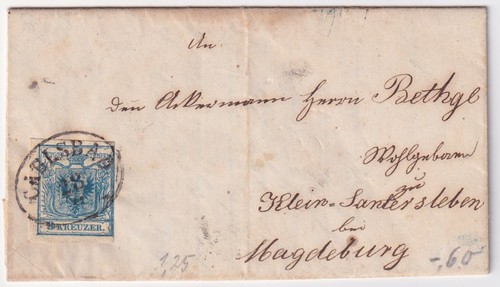 An
den Ackermann Herrn Bethge
Wohlgeboren
zu
Klein-Santersleben
bei
Magdeburg
CARLSBAD
9 KREUZER.
1,25
-.60